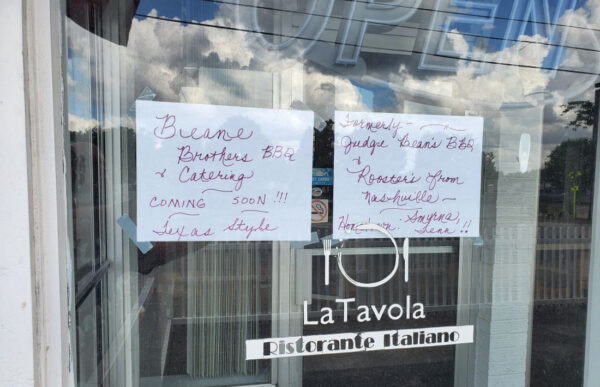 OPEN
Beane
Brothers BBQ
& Catering
COMING SOON !!!
Texas Style
Formerly -
Judge Bean's BBQ
&
Rooster's from
Nashville -
Hometown - Smyrna,
Tenn !!
La Tavola
Ristorante Italiano